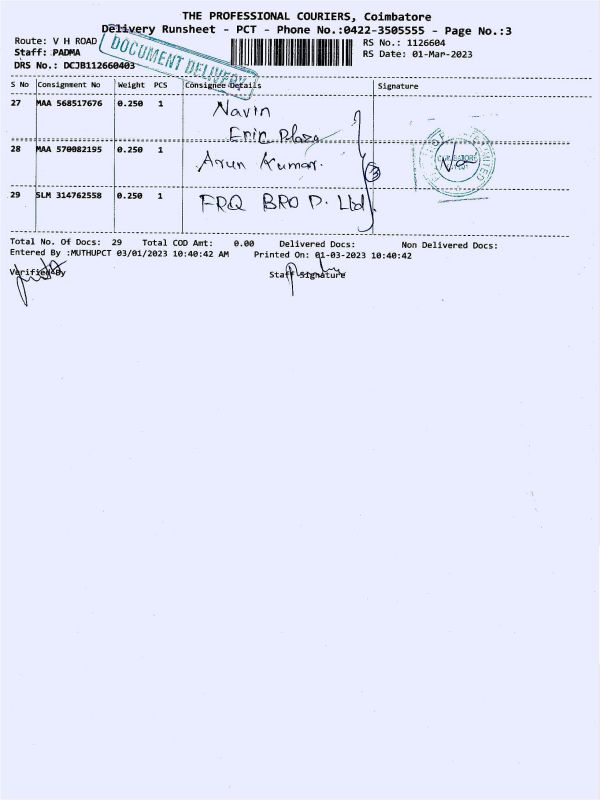 THE PROFESSIONAL COURIERS, Coimbatore
Delivery Runsheet - PCT - Phone No.:0422-3505555 - Page No.:3
Route: V H ROAD
RS No.: 1126604
Staff: PADMA
RS Date: 01-Mar-2023
DRS No.: DCJB112660403
DOCUMENT DELIVERY
S No Consignment No Weight PCS Consignee Details Signature
27 MAA 568517676 0.250 1 Navin
Eric Plaza
28 MAA 570082195 0.250 1 Arun Kumar.
3
COIMBATORE
29 SLM 314762558 0.250 1 FRQ BRO P. Ltd.
Total No. Of Docs: 29 Total COD Amt: 0.00 Delivered Docs: Non Delivered Docs:
Entered By :MUTHUPCT 03/01/2023 10:40:42 AM Printed On: 01-03-2023 10:40:42
Verified By Staff Signature